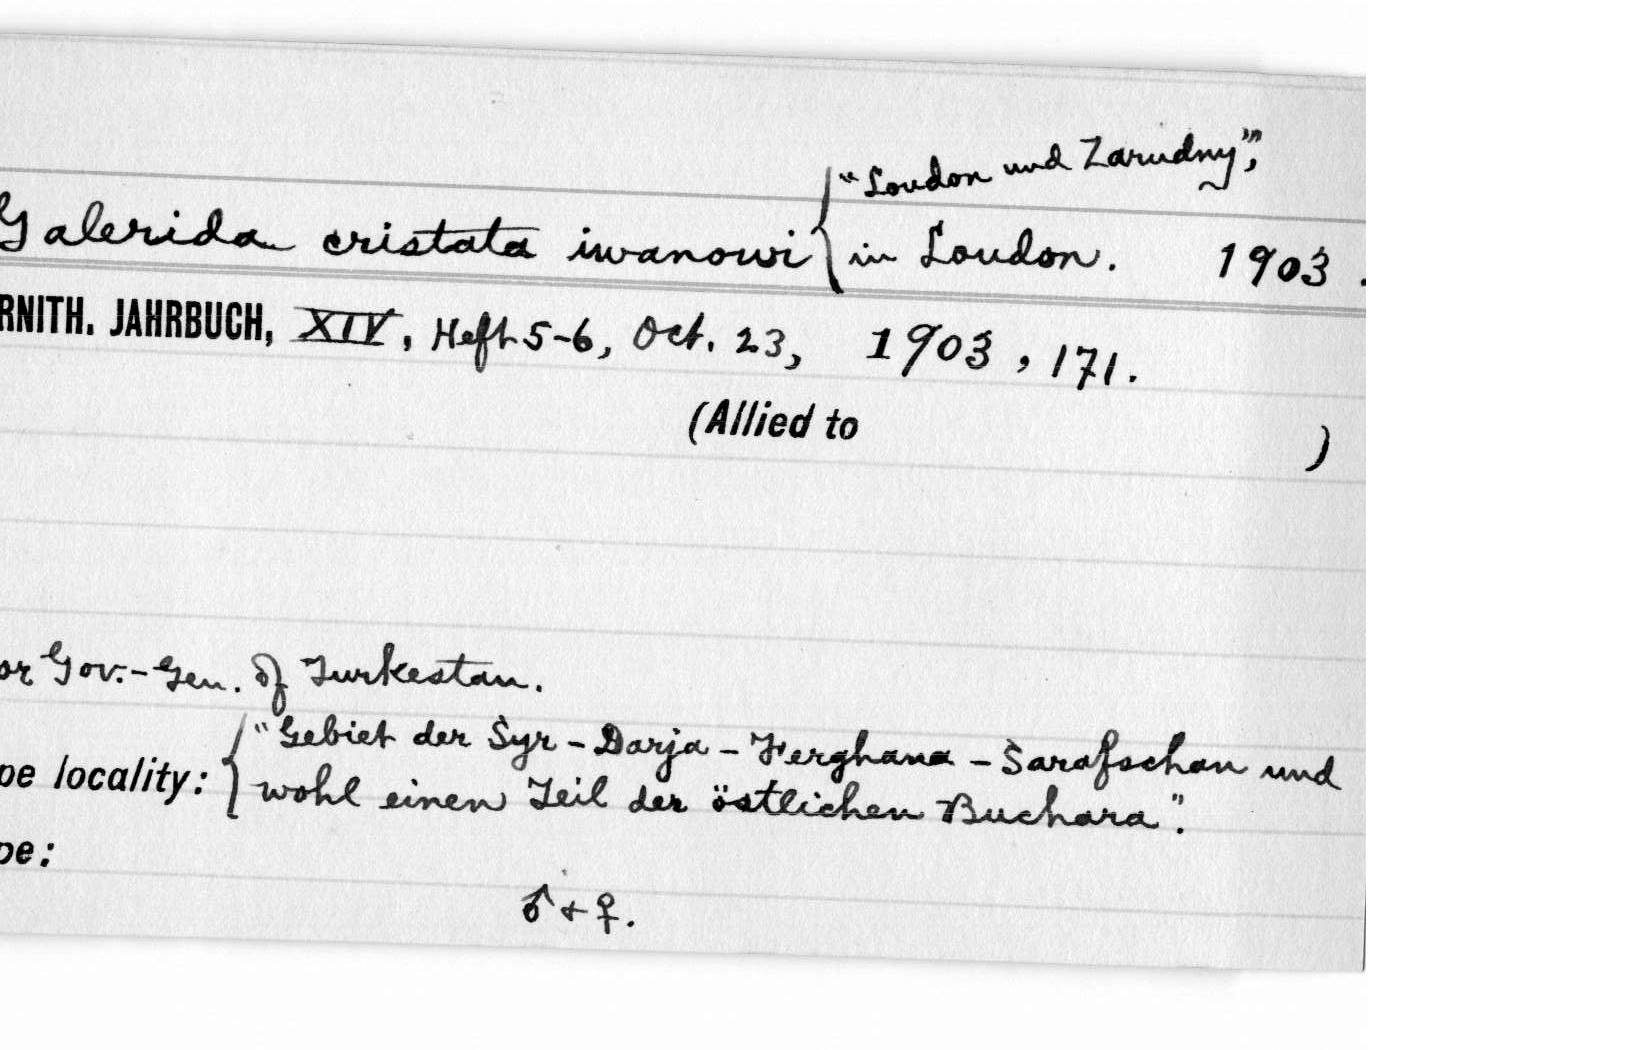 "Loudon und Zarudny",
Galerida cristata iwanowi in Loudon. 1903.
RNITH. JAHRBUCH, XIV, Heft 5-6, Oct. 23, 1903, 171.
(Allied to )
or Gov.-Gen. of Turkestan.
"Gebiet der Syr-Darja-Ferghana-Sarafschan und
pe locality: wohl einen Teil der östlichen Buchara".
pe:
♂ + ♀.